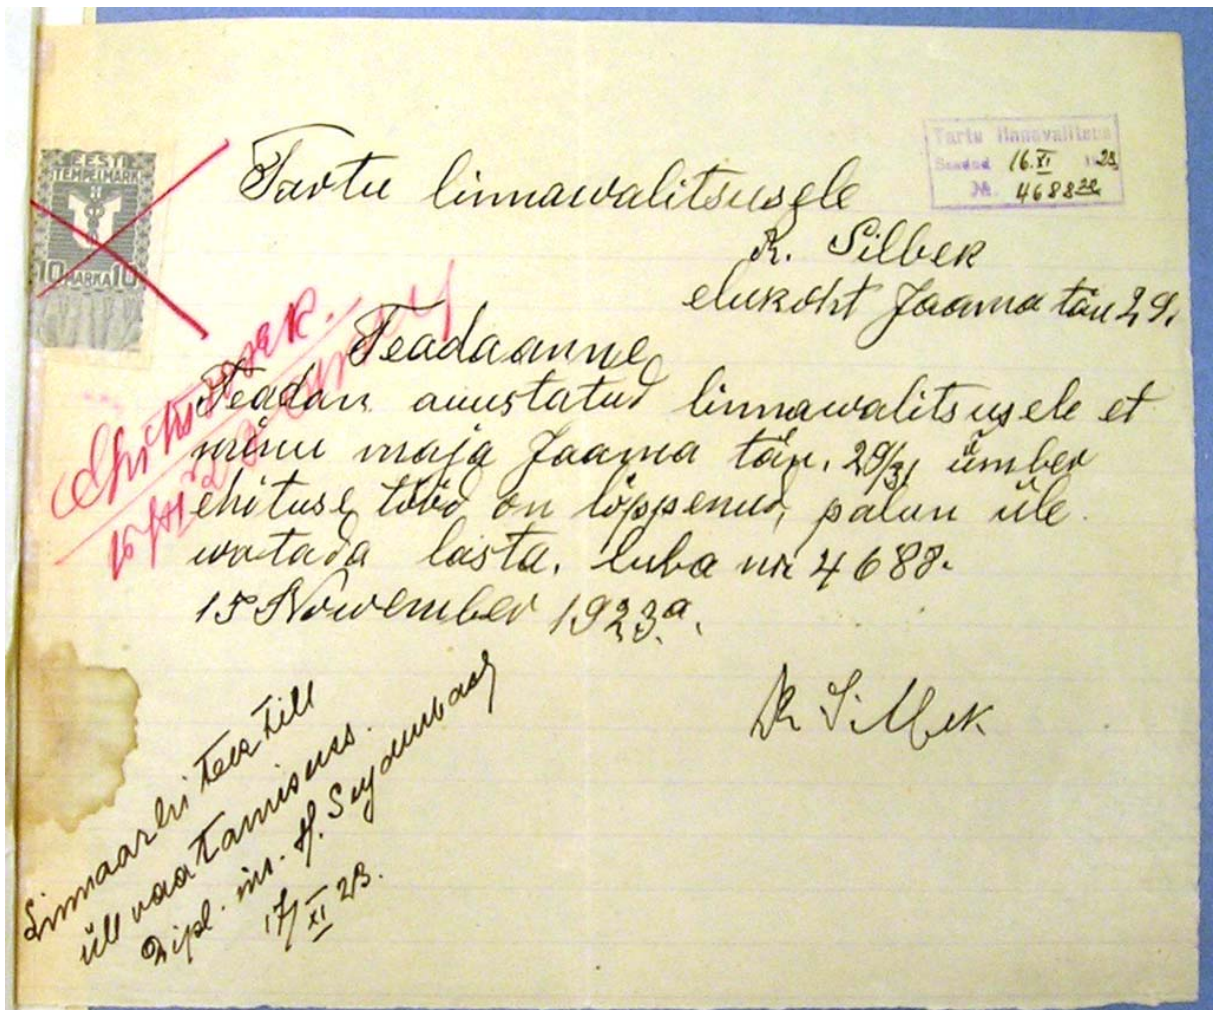 EESTI
TEMPELMARK
10 MARKA 10
Tartu linnavalitsus
Saadud 16.XI 1923
№ 4688
Tartu linnawalitsusele
R. Silbek
elukoht Jaama tän 29.
Teadaanne
Teadan auustatud linnawalitsusele et
minu maja Jaama tän. 29/31 ümber
ehituse tööd on lõppenud, palun üle
watada lasta. luba nr 4688.
15 November 1923.a.
R Silbek
Linnaarhitektill
üll vaatamiseks.
Dipl. ins.
17/XI 23.